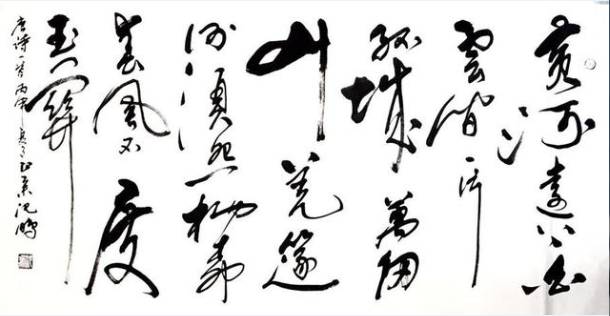 黄河遠上白
雲間一片
孤城萬仞
山羌篴
何須怨楊柳
春風不度
玉門關
唐诗一首丙申沈鵬